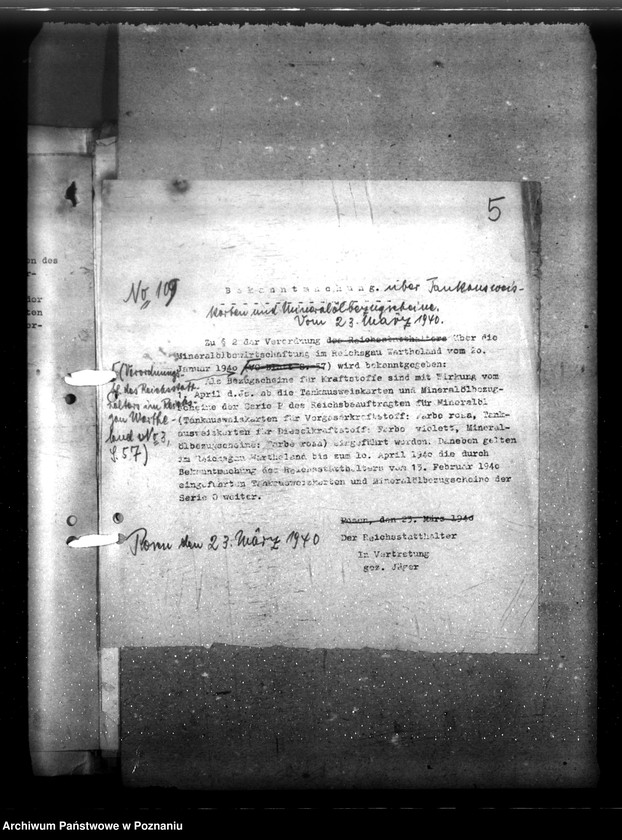 5
en des
r-
dor
ten
or-
No 109
Bekanntmachung. über Tankausweis-
karten und Mineralölbezugscheine.
Vom 23. März 1940.
Zu § 2 der Verordnung des Reichsstatthalters über die
Mineralölbewirtschaftung im Reichsgau Wartheland vom 20.
Januar 1940 (VO Blatt S. 57) wird bekanntgegeben:
Als Bezugscheine für Kraftstoffe sind mit Wirkung vom
1. April d.Js. ab die Tankausweiskarten und Mineralölbezug-
scheine der Serie P des Reichsbeauftragten für Mineralöl
(Tankausweiskarten für Vergaserkraftstoff: Farbe rosa, Tank-
ausweiskarten für Dieselkraftstoff: Farbe violett, Mineral-
ölbezugscheine: Farbe rosa) eingeführt worden. Daneben gelten
im Reichsgau Wartheland bis zum 10. April 1940 die durch
Bekanntmachung des Reichsstatthalters vom 15. Februar 1940
eingeführten Tankausweiskarten und Mineralölbezugscheine der
Serie O weiter.
(Verordnungs-
bl. des Reichsstatt-
halters im Reichs-
gau Warthe-
land Nr. 3,
S. 57)
Posen, den 23. März 1940
Posen den 23. März 1940
Der Reichsstatthalter
In Vertretung
gez. Jäger
Archiwum Państwowe w Poznaniu